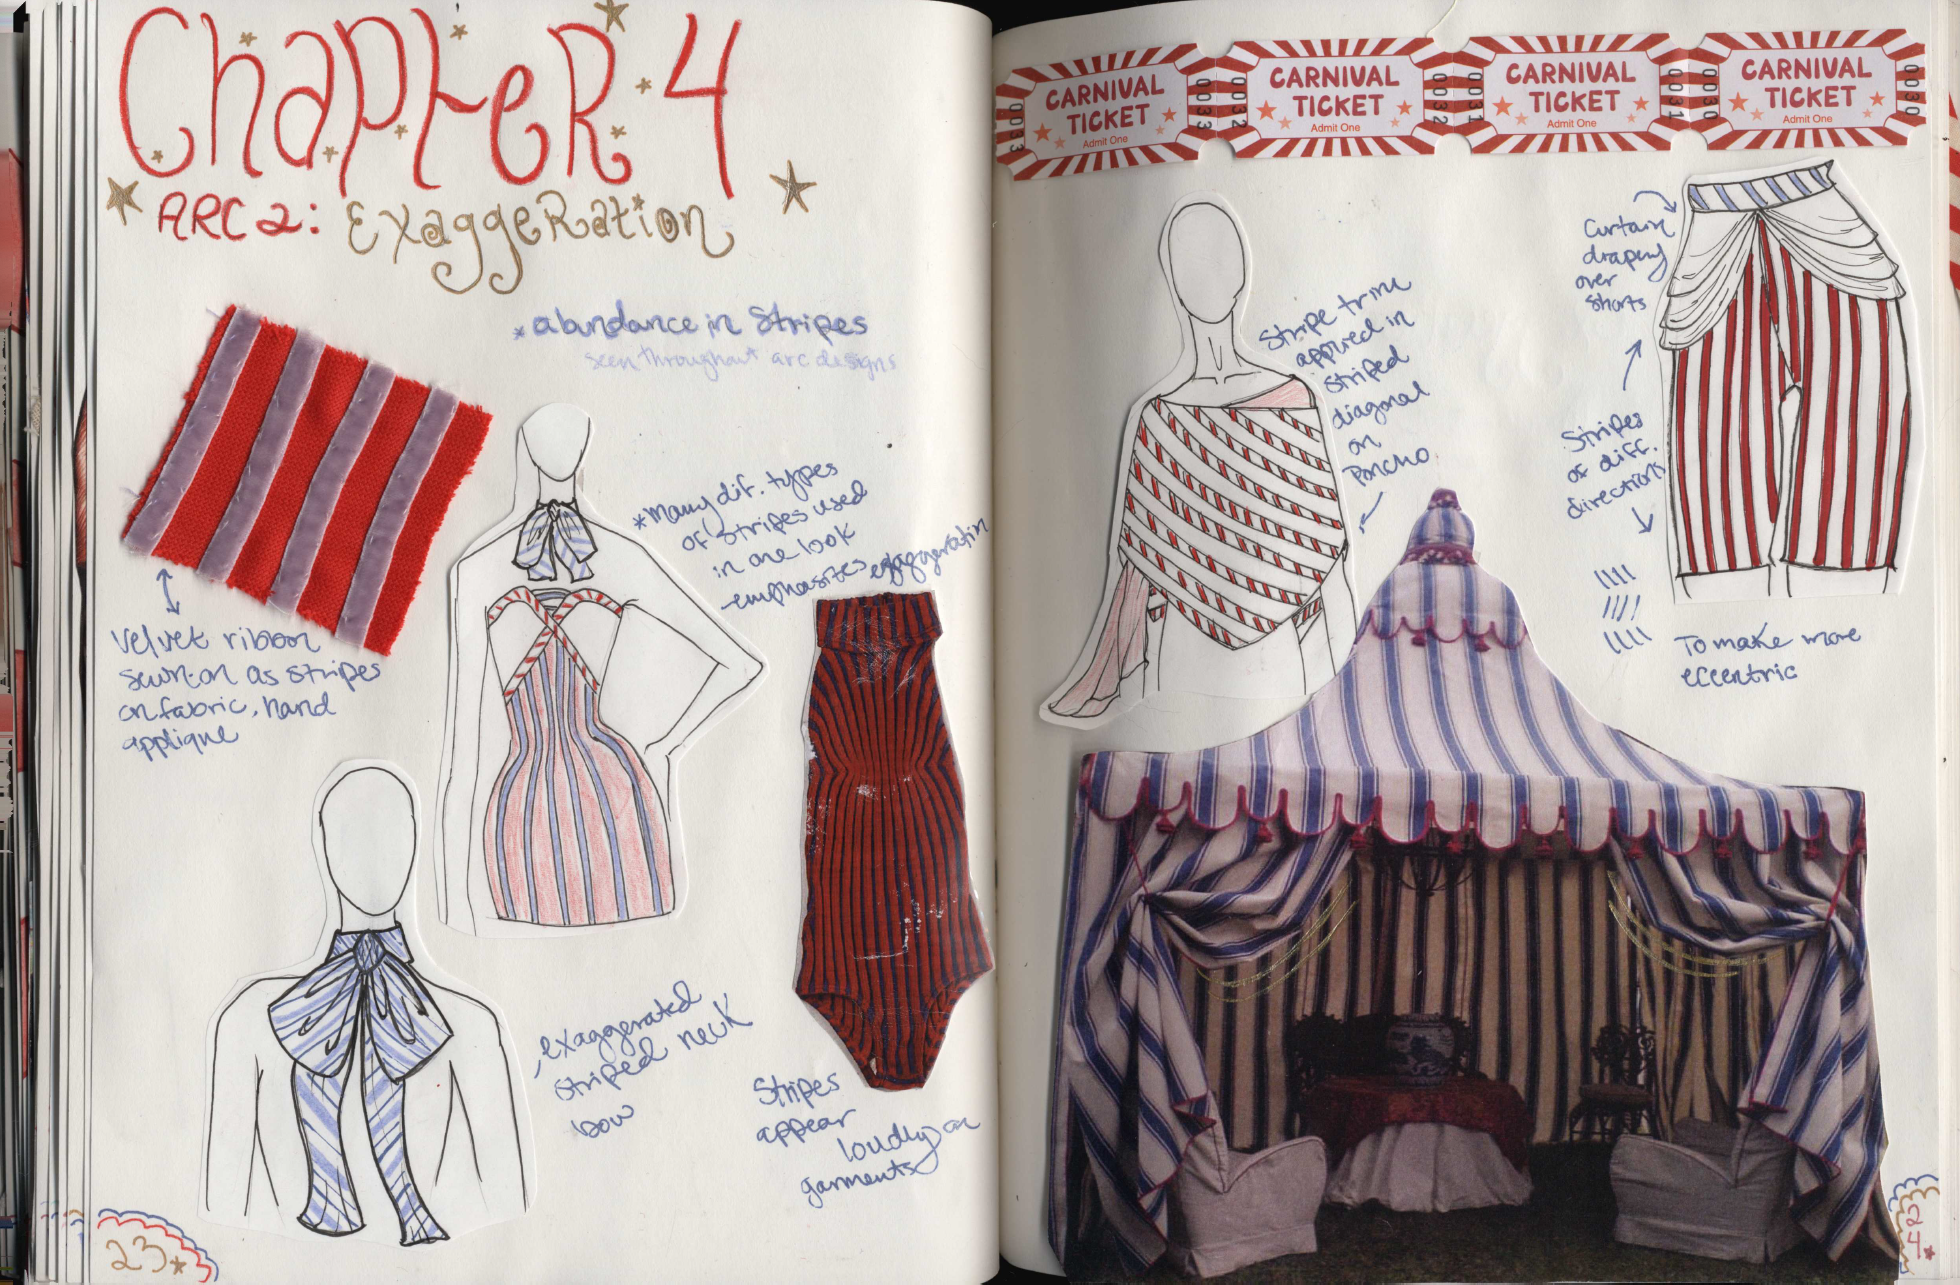 Chapter 4
ARC 2: Exaggeration
*abundance in Stripes
seen throughout arc designs
Velvet ribbon
sewn on as stripes
on fabric, hand
applique
*Many dif. types
of stripes used
in one look
-emphasizes exaggeration
exaggerated
striped neck
bow
Stripes
appear
loudly on
garments
23
CARNIVAL
TICKET
Admit One
0033
0033
CARNIVAL
TICKET
Admit One
0032
0032
CARNIVAL
TICKET
Admit One
0031
0031
CARNIVAL
TICKET
Admit One
0030
0030
Stripe trim
applied in
striped
diagonal
on
Poncho
Curtain
drapery
over
shorts
Stripes
of diff.
directions
To make more
eccentric
24